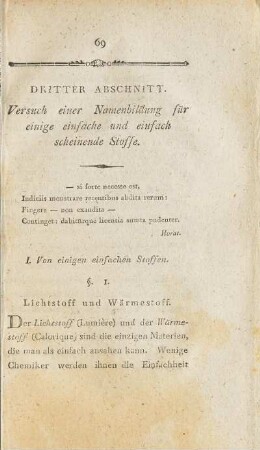 69
DRITTER ABSCHNITT.
Versuch einer Namenbildung für
einige einfache und einfach
scheinende Stoffe.
— si forte necesse est,
Indiciis monstrare recentibus abdita rerum:
Fingere — non exaudita —
Continget: dabiturque licentia sumta pudenter.
Horat.
I. Von einigen einfachen Stoffen.
§. 1.
Lichtstoff und Wärmestoff.
Der Lichtstoff (Lumière) und der Wärme-
stoff (Calorique) sind die einzigen Materien,
die man als einfach ansehen kann. Wenige
Chemiker werden ihnen die Einfachheit